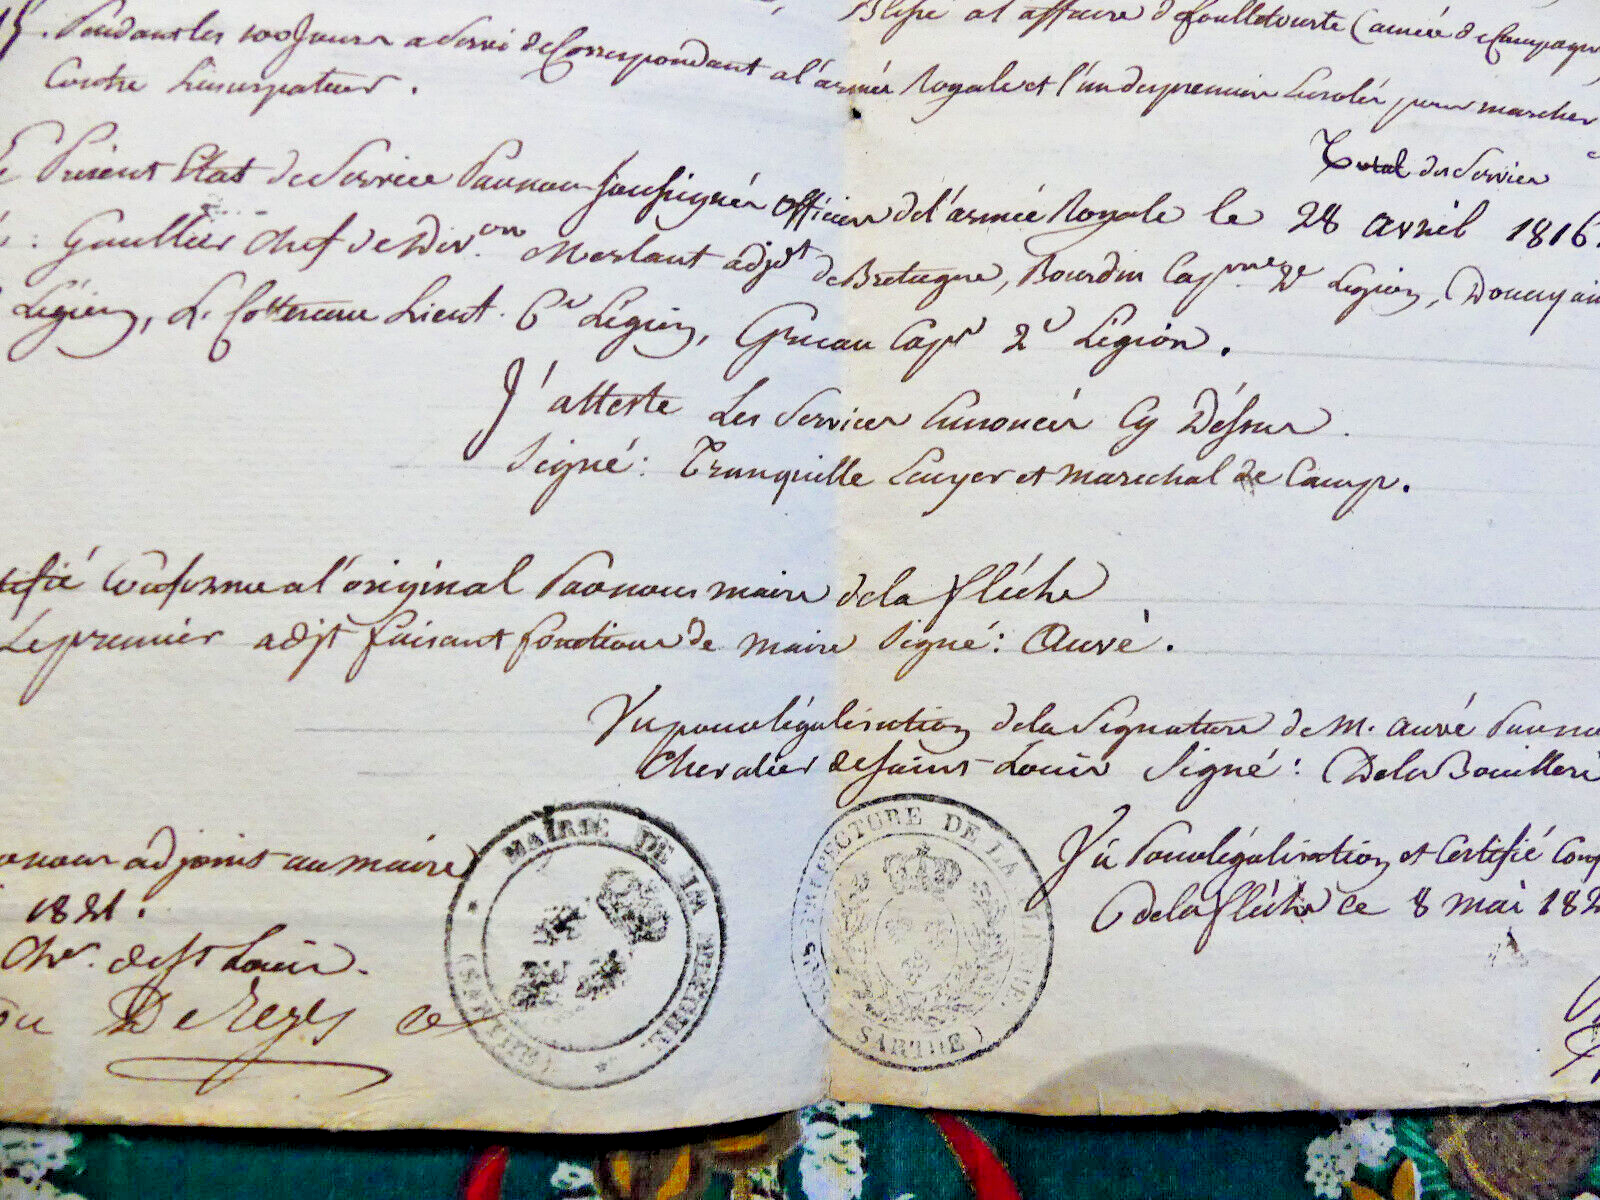 Blessé a l'affaire de foulletourte (armée de Campagne
15. Pendant les 100 Jours a servi de Correspondant a l'armée Royale et l'un des premiers Enrolés pour marcher
Contre L'usurpateur.
Total des Services
Le Présent Etat de Service Par nous soussignés officiers de l'armée Royale le 28 avril 1816.
: Gaultier Chef de Div.on Meslant adjdt de Bretagne, Bourdin Cap.ne 2e Légion,
Légion, Lieut. 6e Légion, Gruau Cape 2e Légion.
J'atteste Les Services Enoncés Cy Dessus.
Signé: Tranquille Ecuyer et marechal de Camp.
tifié Conforme a l'original Par nous maire de la flèche
Le premier adjt faisant fonctions de maire Signé: Auvé.
Vu pour légalisation de la Signature de M. auvé Par nous
Chevalier de Saint-Louis Signé: De la Bouillerie
nous adjoint au maire
1821.
Chr. de St Louis.
MAIRIE DE LA FLECHE.
(SARTHE)
SOUS PREFECTURE DE LA FLECHE.
(SARTHE)
Vu Pour légalisation et Certifié Conf
De la flèche ce 8 mai 182